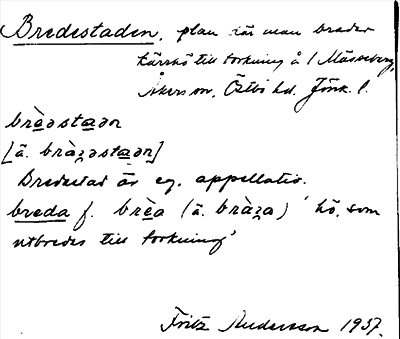 Bredestaden, plan där man breder
kärrhö till torkning å / Mässeberg,
Åkers sn, Östbo hd. Jönk. l.
brèəstaən
[ä. bràʒəstaən]
Bredestad är eg. appellativ.
breda f. brèa (ä. bràʒa) 'hö, som
utbredes till torkning'
Fritz Andersson 1937.